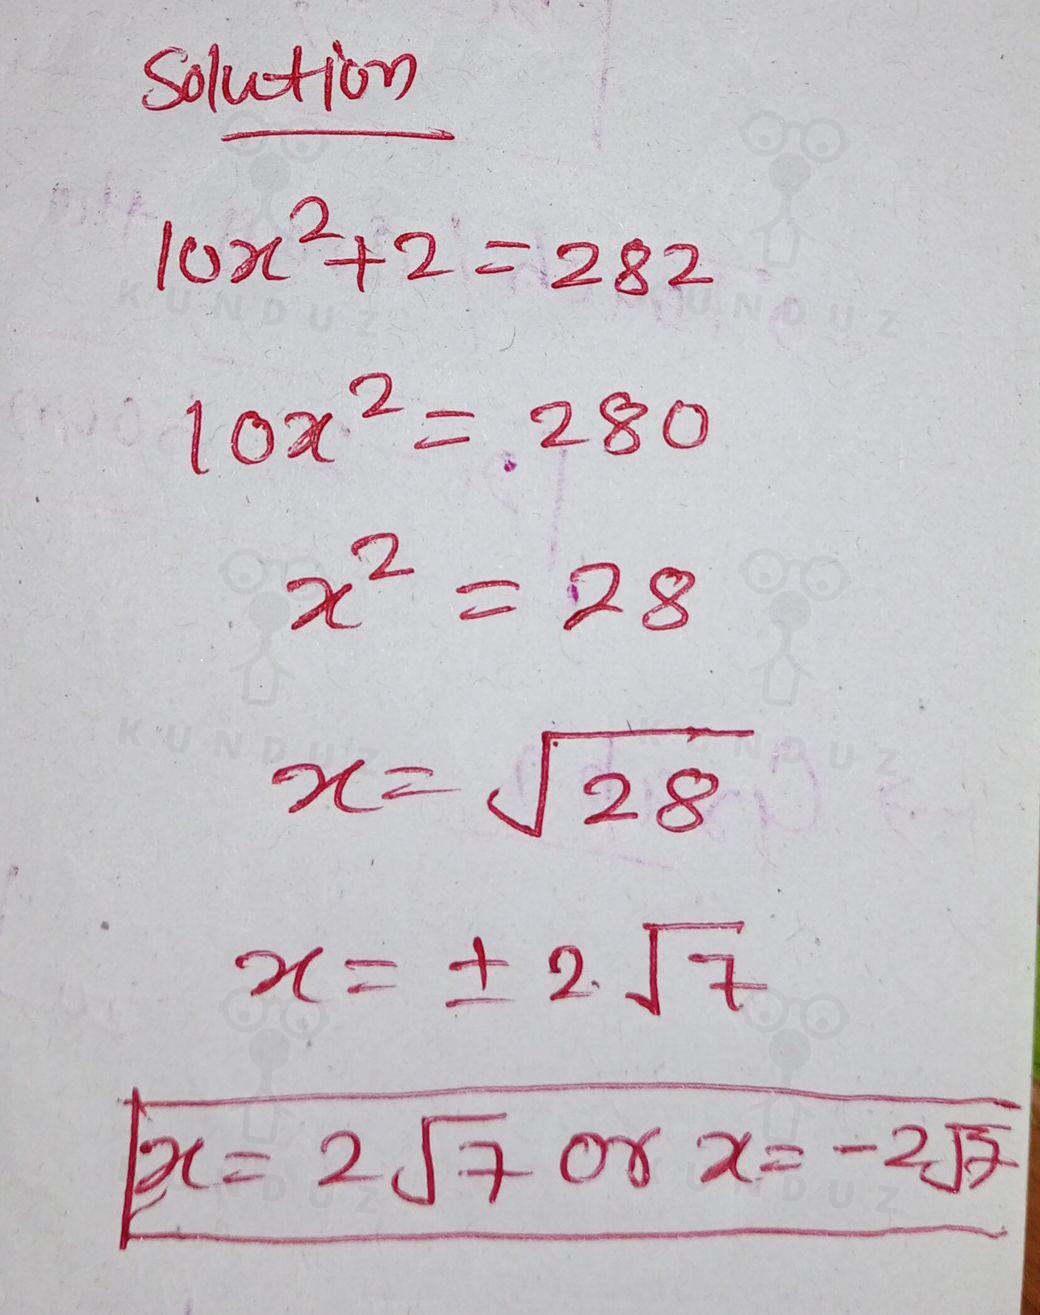 Solution
10x²+2=282
10x²=280
x²=28
x=√28
x=±2√7
x=2√7 or x=-2√7
KUNDUZ
KUNDUZ
KUNDUZ
KUNDUZ
KUNDUZ
KUNDUZ